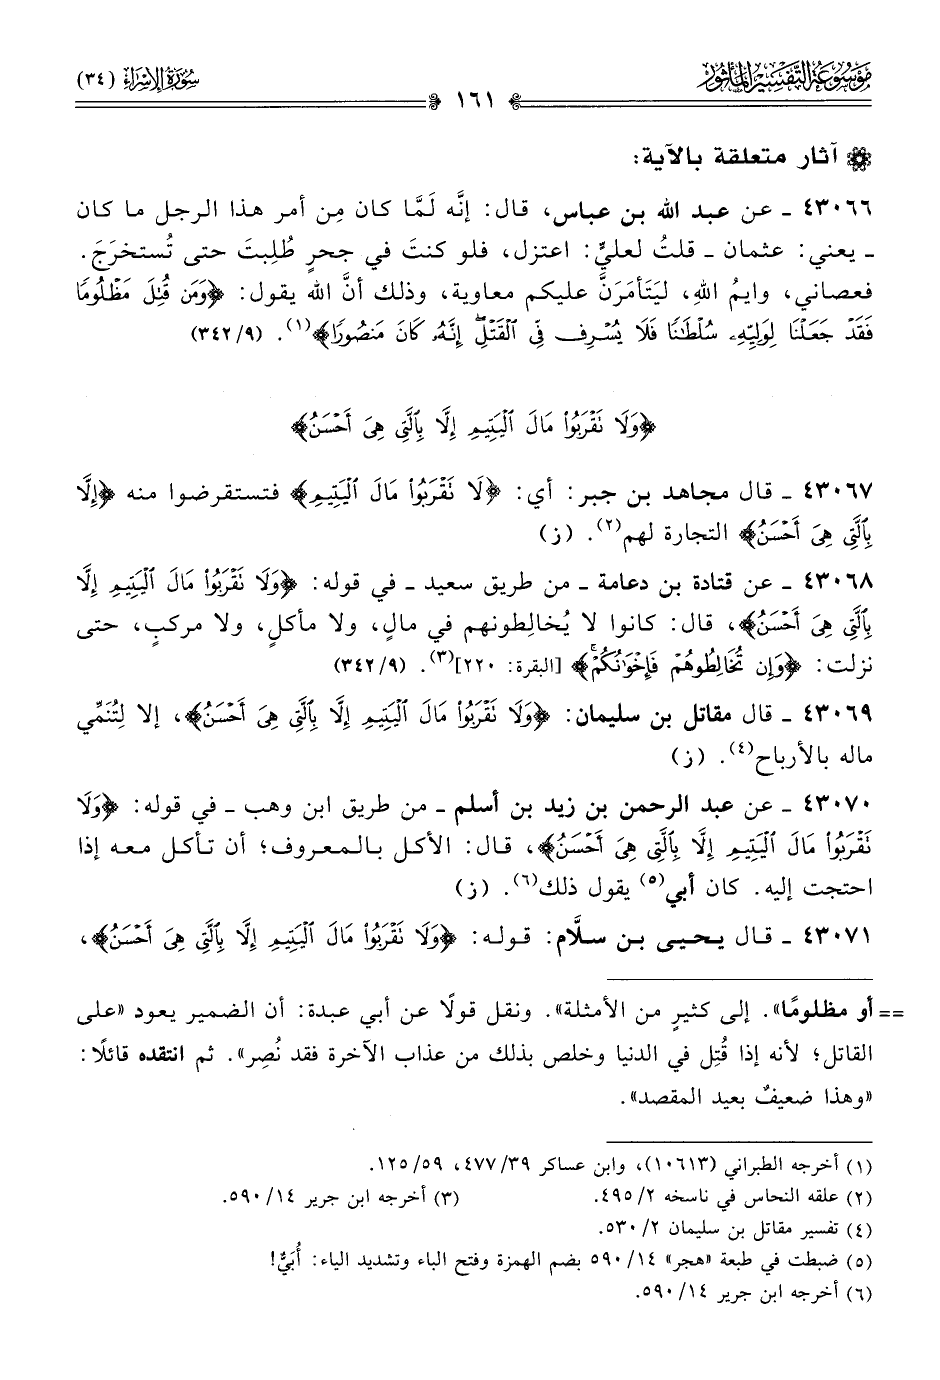 مَوْسُوعَة التَّفْسِيرِ المَأْثُور
سُورَةُ الإِسْرَاء (٣٤)
١٦١
آثار متعلقة بالآية:
٤٣٠٦٦ ـ عن عبد الله بن عباس، قال: إنَّه لَمَّا كان مِن أمر هذا الرجل ما كان
ـ يعني: عثمان ـ قلتُ لعليٍّ: اعتزل، فلو كنتَ في جحرٍ طُلِبتَ حتى تُستخرَجَ.
فعصاني، وايمُ اللهِ، ليَتأمَرَنَّ عليكم معاوية، وذلك أنَّ الله يقول: ﴿وَمَن قُتِلَ مَظْلُومًا
فَقَدْ جَعَلْنَا لِوَلِيِّهِۦ سُلْطَٰنًا فَلَا يُسْرِف فِّى ٱلْقَتْلِۖ إِنَّهُۥ كَانَ مَنصُورًا﴾(١). (٣٤٢/٩)
﴿وَلَا تَقْرَبُوا۟ مَالَ ٱلْيَتِيمِ إِلَّا بِٱلَّتِى هِىَ أَحْسَنُ﴾
٤٣٠٦٧ ـ قال مجاهد بن جبر: أي: ﴿لَا تَقْرَبُوا۟ مَالَ ٱلْيَتِيمِ﴾ فتستقرضوا منه ﴿إِلَّا
بِٱلَّتِى هِىَ أَحْسَنُ﴾ التجارة لهم(٢). (ز)
٤٣٠٦٨ ـ عن قتادة بن دعامة ـ من طريق سعيد ـ في قوله: ﴿وَلَا تَقْرَبُوا۟ مَالَ ٱلْيَتِيمِ إِلَّا
بِٱلَّتِى هِىَ أَحْسَنُ﴾، قال: كانوا لا يُخالِطونهم في مالٍ، ولا مأكلٍ، ولا مركبٍ، حتى
نزلت: ﴿وَإِن تُخَالِطُوهُمْ فَإِخْوَٰنُكُمْۚ﴾ [البقرة: ٢٢٠](٣). (٣٤٢/٩)
٤٣٠٦٩ ـ قال مقاتل بن سليمان: ﴿وَلَا تَقْرَبُوا۟ مَالَ ٱلْيَتِيمِ إِلَّا بِٱلَّتِى هِىَ أَحْسَنُ﴾، إلا لِتُنَمِّي
ماله بالأرباح(٤). (ز)
٤٣٠٧٠ ـ عن عبد الرحمن بن زيد بن أسلم ـ من طريق ابن وهب ـ في قوله: ﴿وَلَا
تَقْرَبُوا۟ مَالَ ٱلْيَتِيمِ إِلَّا بِٱلَّتِى هِىَ أَحْسَنُ﴾، قال: الأكل بالمعروف؛ أن تأكل معه إذا
احتجت إليه. كان أبي(٥) يقول ذلك(٦). (ز)
٤٣٠٧١ ـ قال يحيى بن سلَّام: قوله: ﴿وَلَا تَقْرَبُوا۟ مَالَ ٱلْيَتِيمِ إِلَّا بِٱلَّتِى هِىَ أَحْسَنُ﴾،
== أو مظلومًا». إلى كثيرٍ من الأمثلة». ونقل قولًا عن أبي عبدة: أن الضمير يعود «على
القاتل؛ لأنه إذا قُتِل في الدنيا وخلص بذلك من عذاب الآخرة فقد نُصِر». ثم انتقده قائلًا:
«وهذا ضعيفٌ بعيد المقصد».
(١) أخرجه الطبراني (١٠٦١٣)، وابن عساكر ٤٧٧/٣٩، ١٢٥/٥٩.
(٢) علقه النحاس في ناسخه ٤٩٥/٢. (٣) أخرجه ابن جرير ٥٩٠/١٤.
(٤) تفسير مقاتل بن سليمان ٥٣٠/٢.
(٥) ضبطت في طبعة «هجر» ٥٩٠/١٤ بضم الهمزة وفتح الباء وتشديد الياء: أُبَيٌّ!
(٦) أخرجه ابن جرير ٥٩٠/١٤.